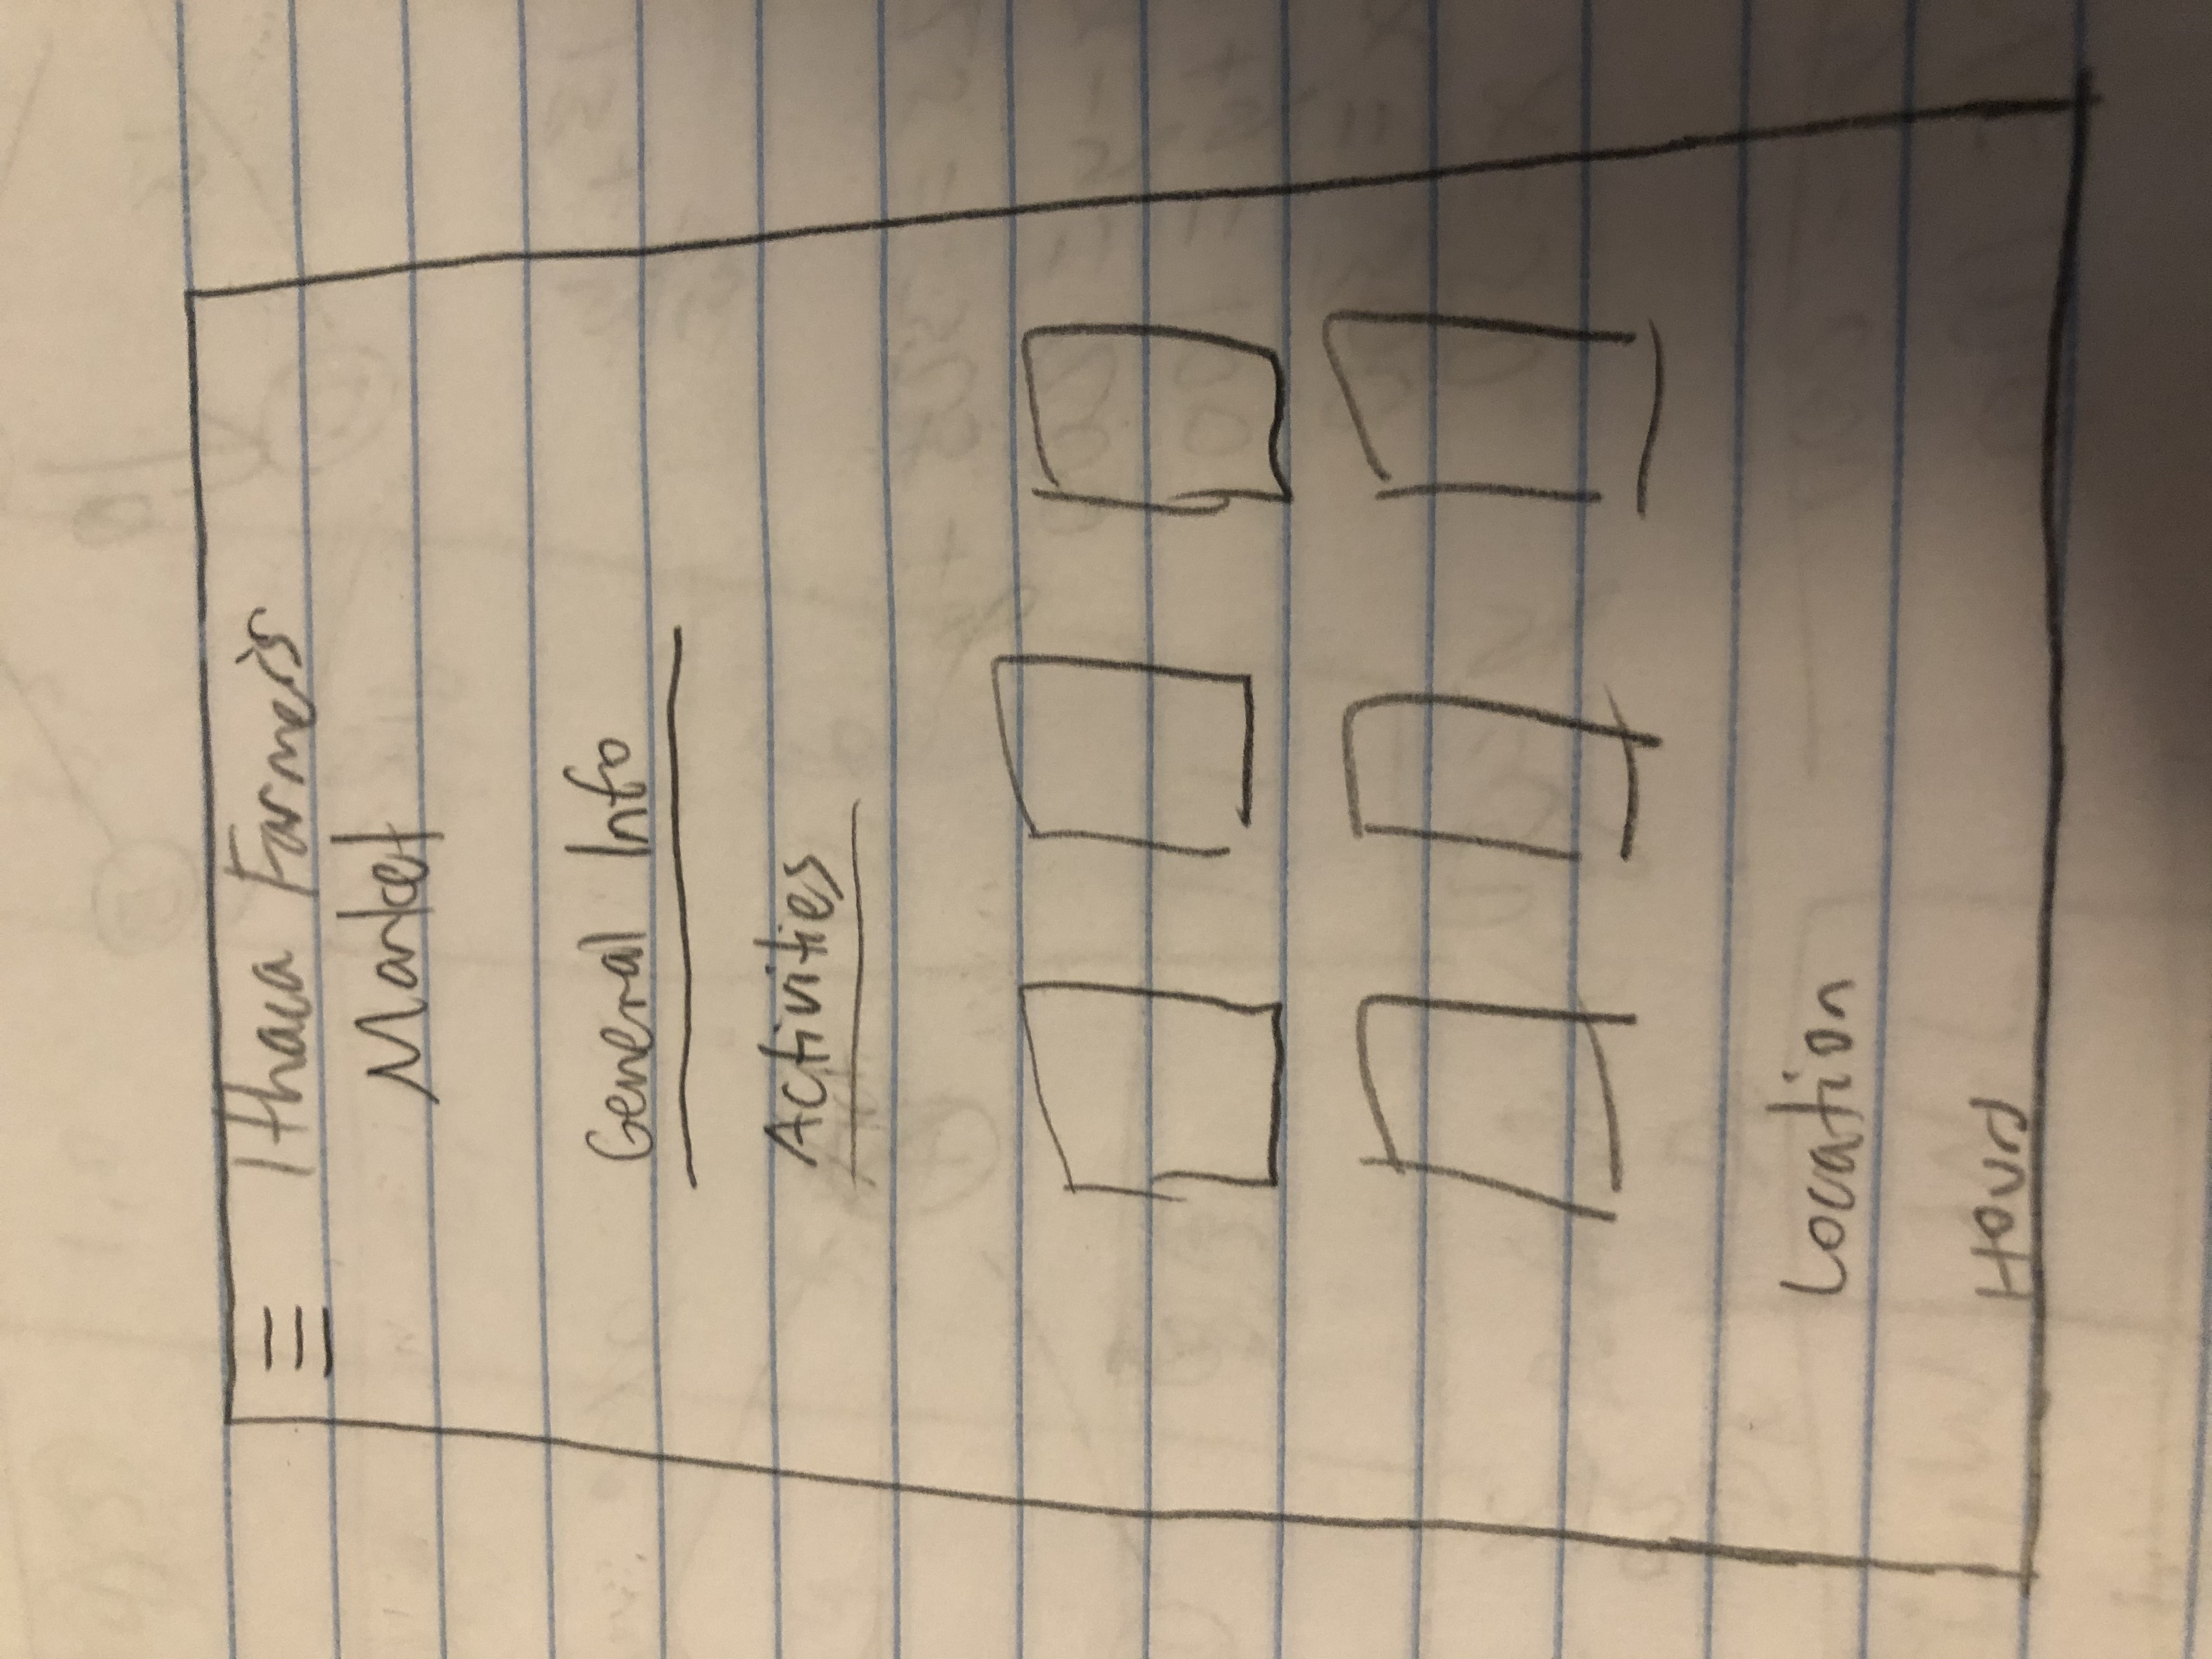 Ithaca Farmer's
Market
General Info
Activities
Location
Hours